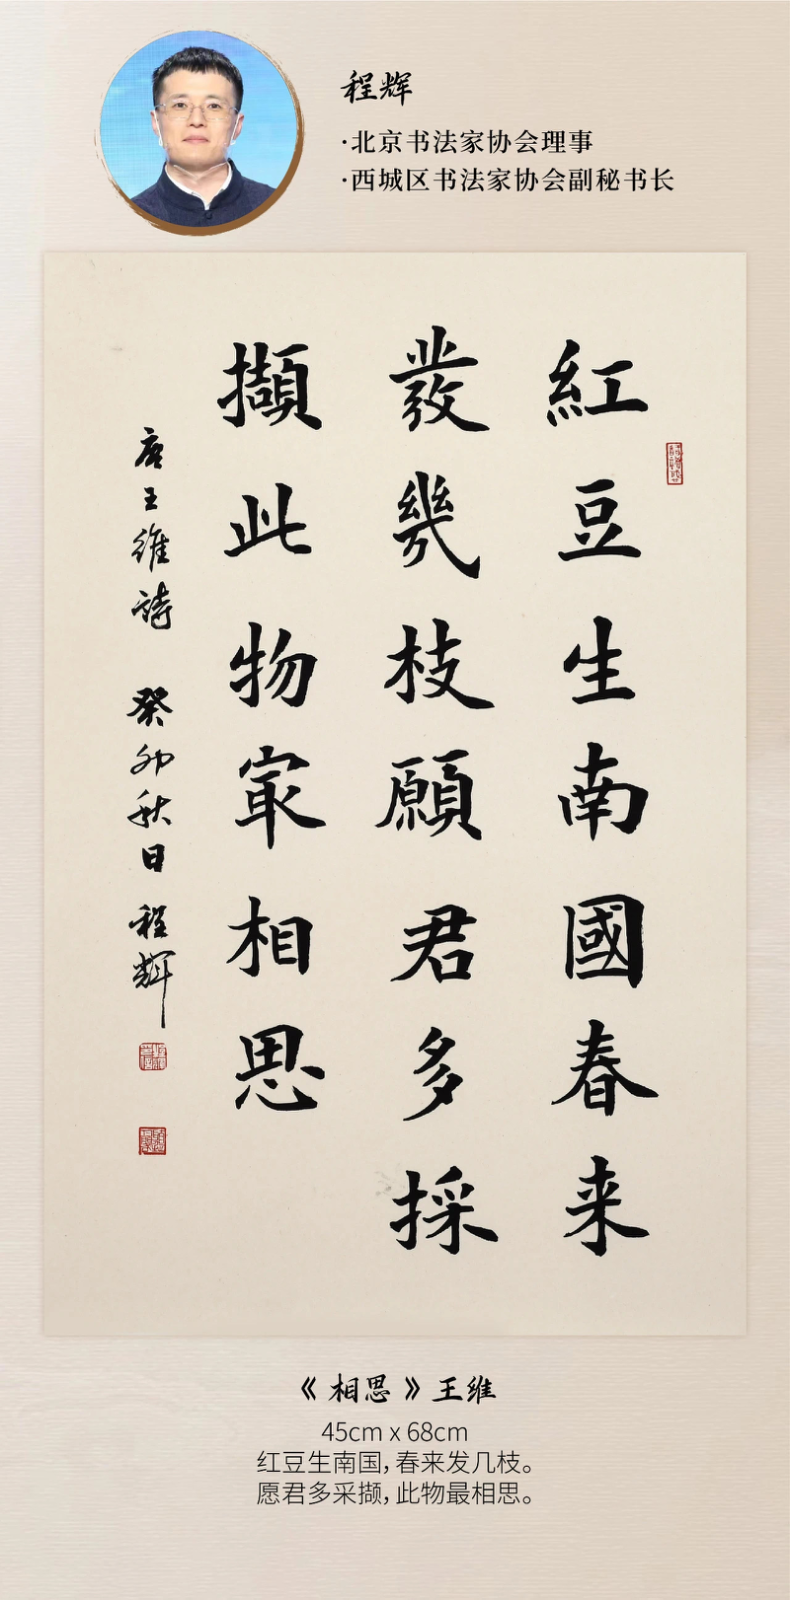 程辉
·北京书法家协会理事
·西城区书法家协会副秘书长
紅豆生南國春来
發幾枝願君多採
擷此物冣相思
唐王維詩 癸卯秋日 程輝
《相思》王维
45cm x 68cm
红豆生南国，春来发几枝。
愿君多采撷，此物最相思。